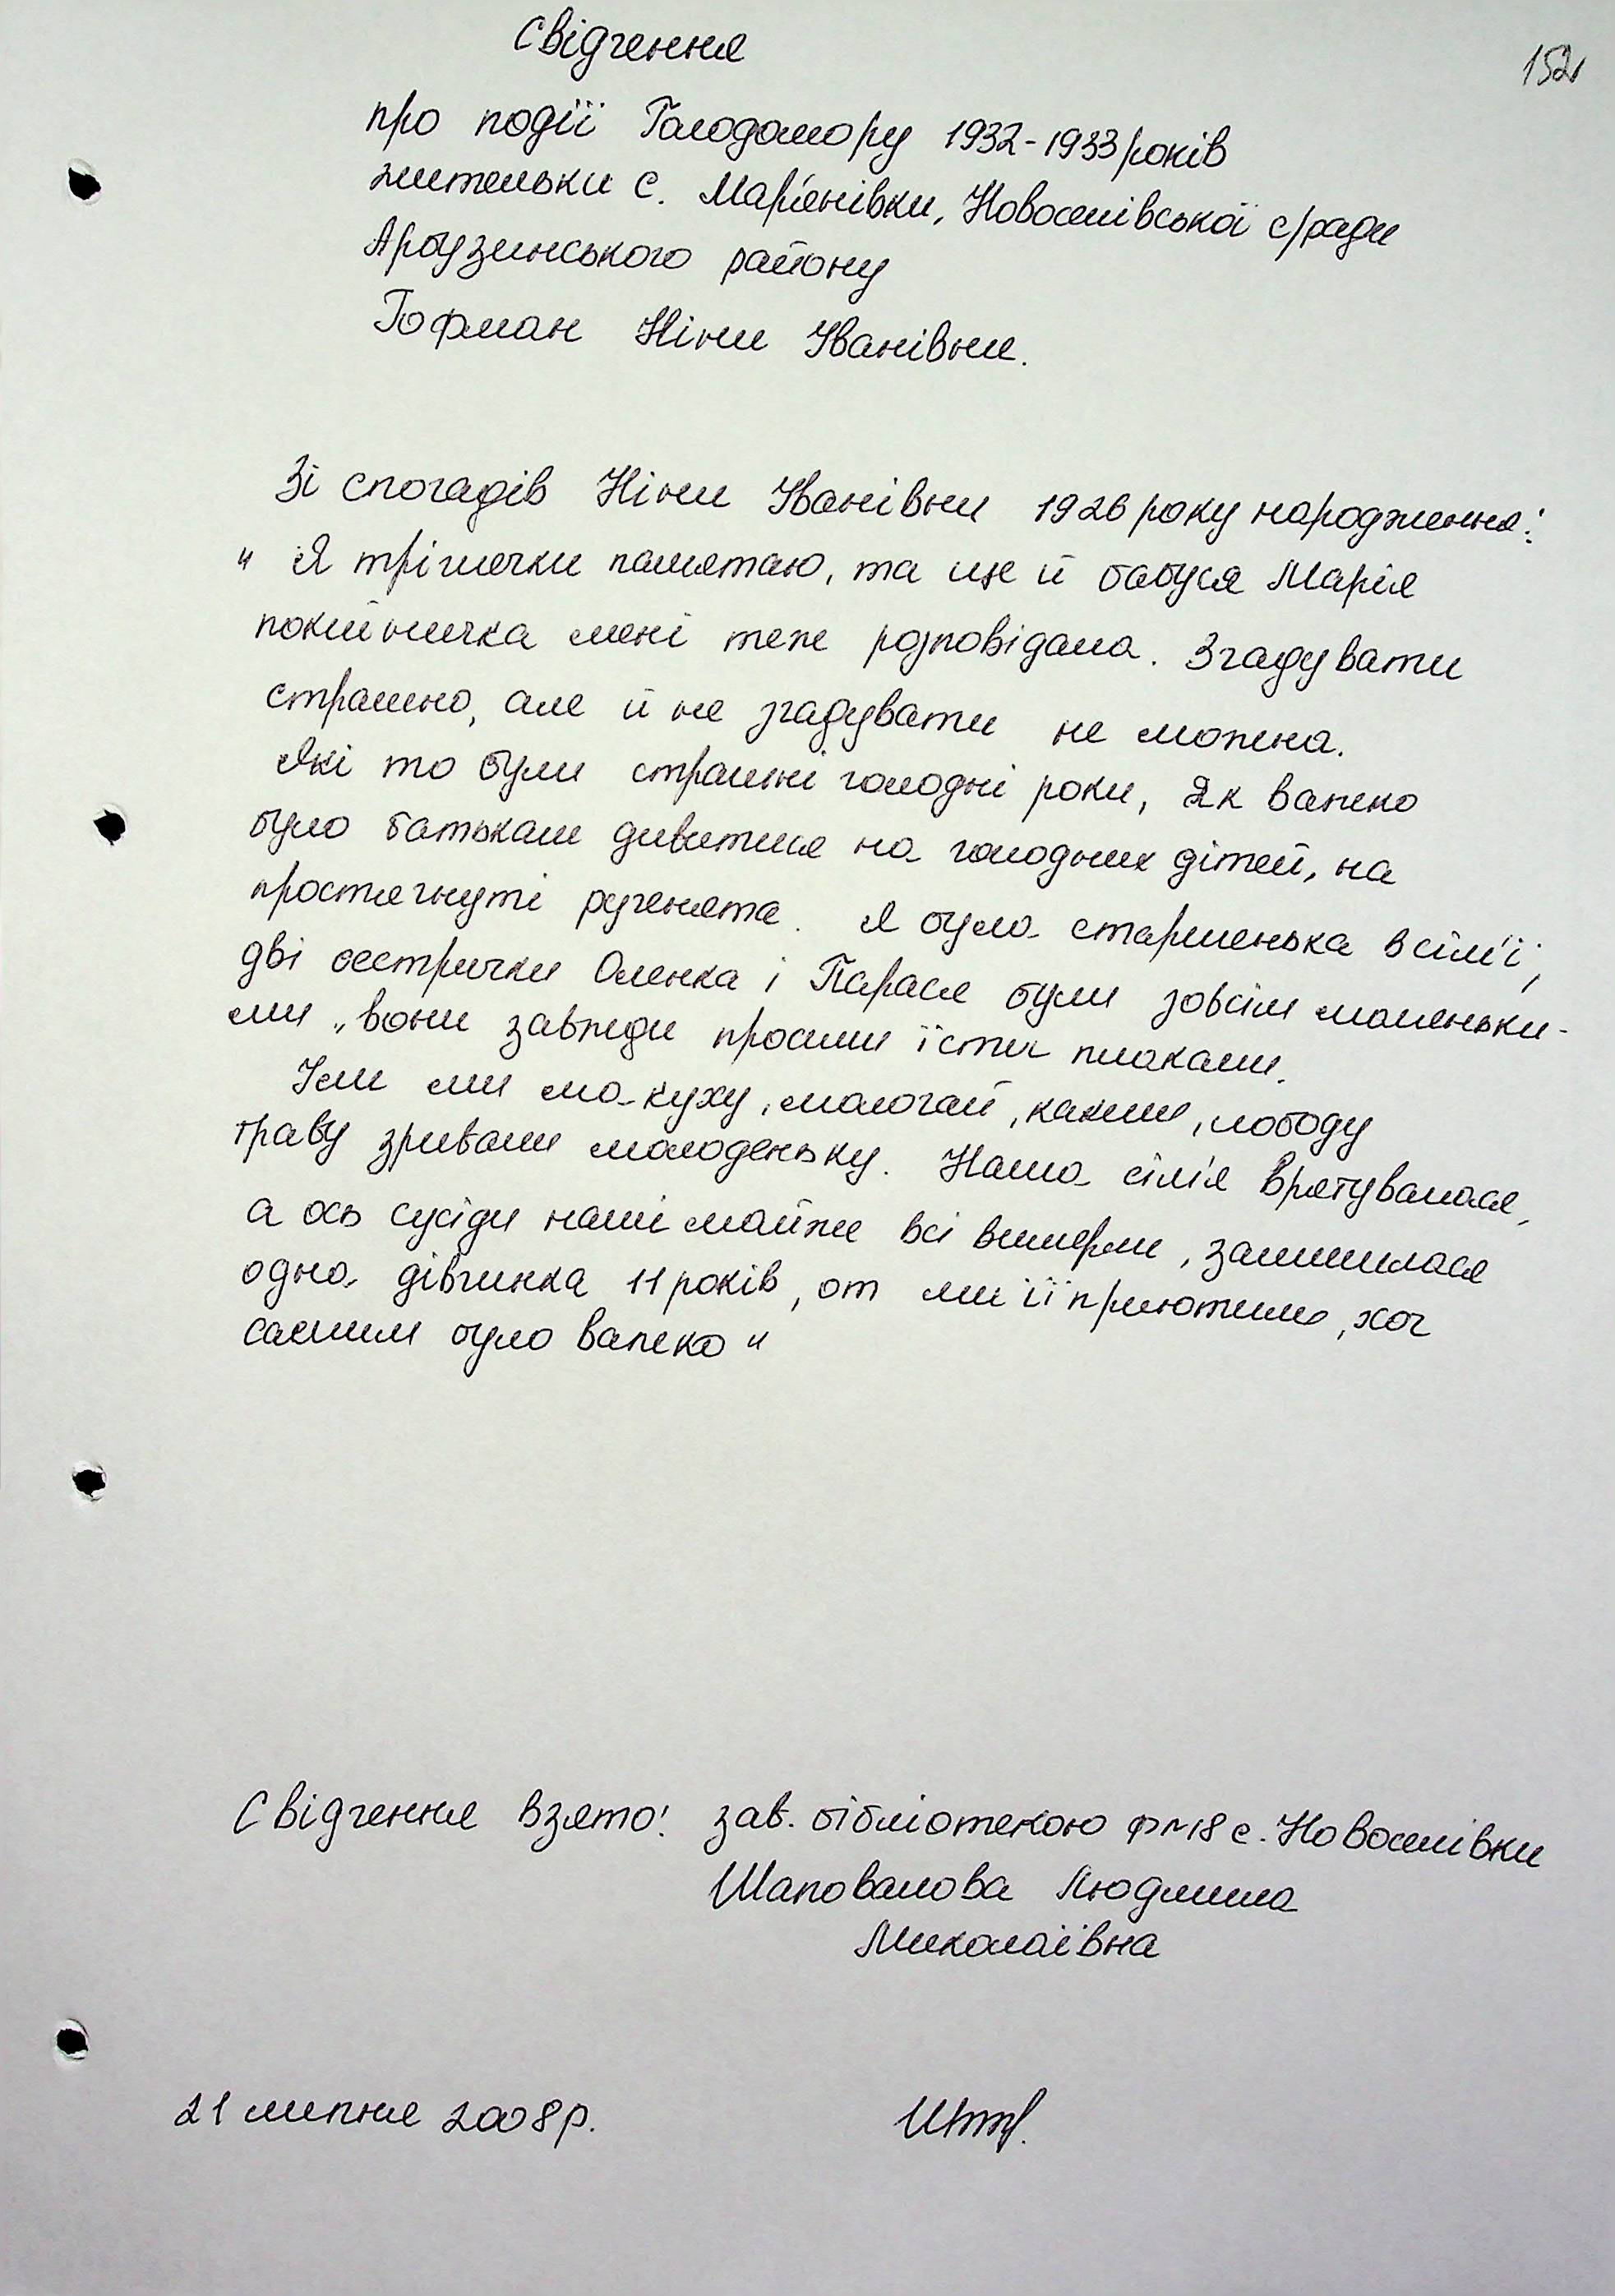 152
Свідчення
про події Голодомору 1932-1933 років
жительки с. Мар'янівки, Новоселівської с/ради
Арбузинського району
Гофман Ніни Іванівни.
Зі спогадів Ніни Іванівни 1926 року народження:
" Я трішечки памятаю, та ще й бабуся Марія
покійничка мені теж розповідала. Згадувати
страшно, але й не згадувати не можна.
Які то були страшні голодні роки, Як важко
було батькам дивитися на голодних дітей, на
простягнуті рученята. Я була старшенька в сім'ї,
дві сестрички Оленка і Парася були зовсім маленьки-
ми „ вони завжди просили їсти плакали.
Їли ми ма-куху, малогай, калину, лободу
траву зривали молоденьку. Наша сім'я врятувалася,
а ось сусіди наші майже всі вимерли, залишилася
одна дівчинка 11 років, от ми її приютили, хоч
самим було важко "
Свідчення взято: зав. бібліотекою ф №18 с. Новоселівки
Шаповалова Людмила
Миколаївна
21 липня 2008р.